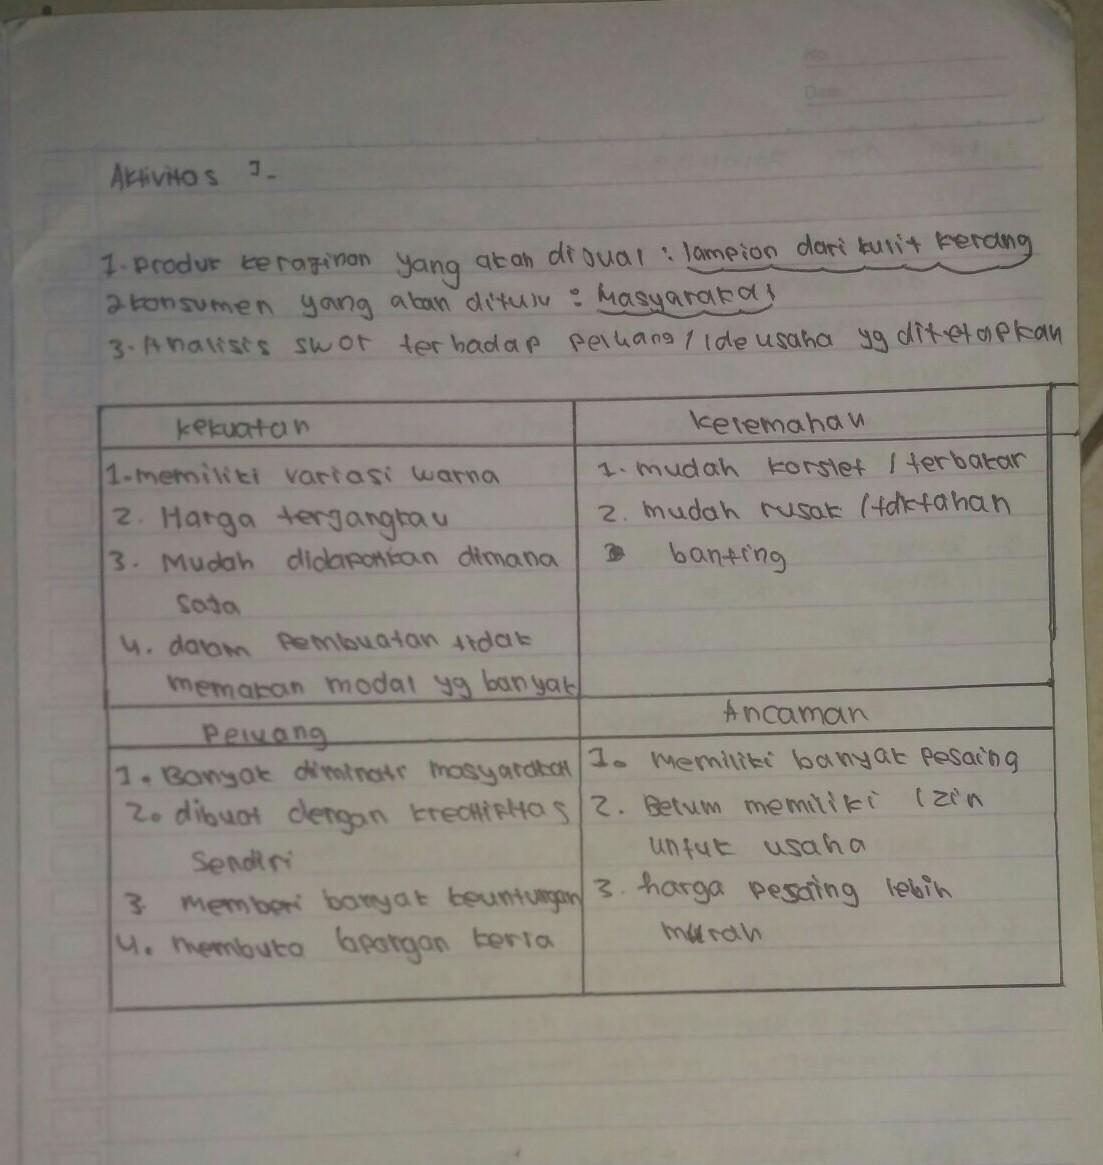 No
Date
Aktivitas 1.
1. Produk kerajinan yang akan dijual : lampion dari kulit kerang
2 konsumen yang akan dituju : Masyarakat
3. Analisis swot terhadap peluang / ide usaha yg ditetapkan
kekuatan
kelemahan
1. memiliki variasi warna
2. Harga tergangkau
3. Mudah didapatkan dimana
saja
4. dalam pembuatan tidak
memakan modal yg banyak
1. mudah korslet / terbakar
2. mudah rusak / tdktahan
banting
Peluang
Ancaman
1. Banyak diminati masyarakat
2. dibuat dengan kreatifitas
sendiri
3 memberi banyak keuntungan
4. membuka lapangan kerja
1. memiliki banyak pesaing
2. Belum memiliki izin
untuk usaha
3. harga pesaing lebih
murah